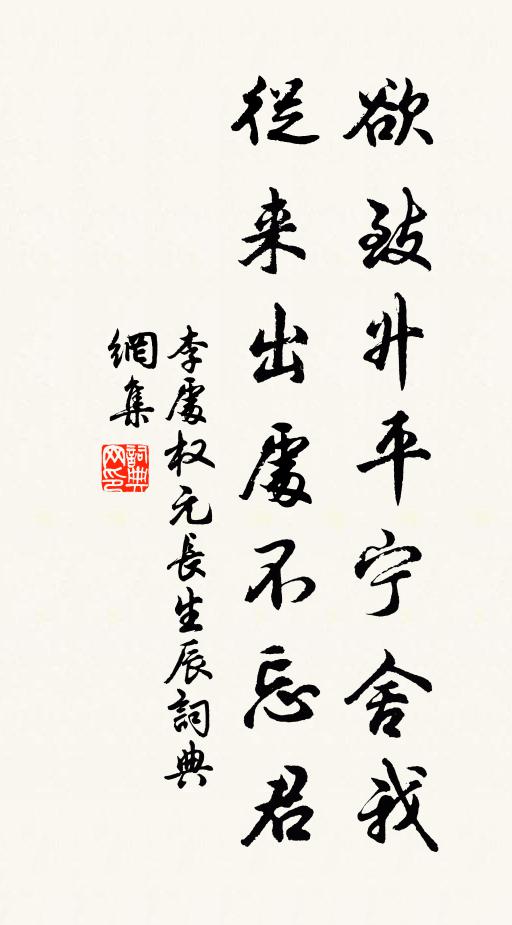 欲致升平宁舍我
從来出處不忘君
李處权元長生辰詞典
網集
詞典网印